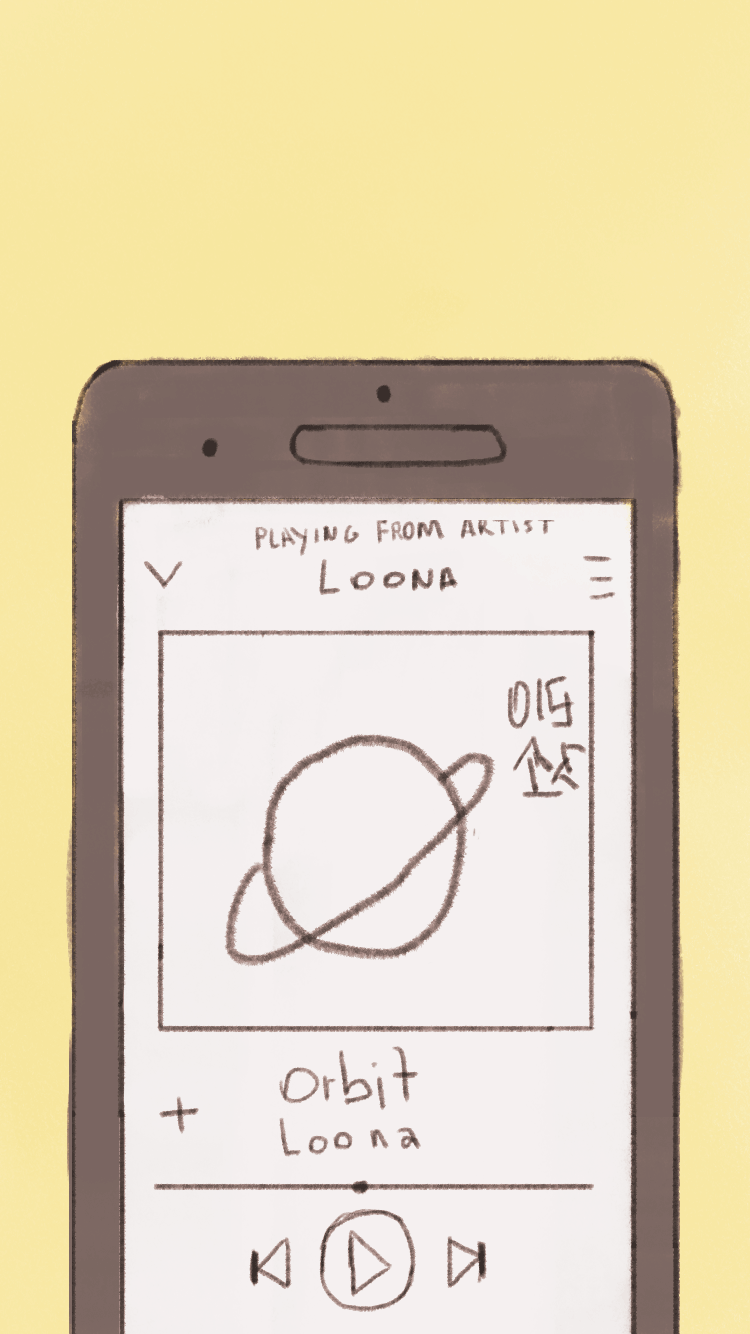 PLAYING FROM ARTIST
LOONA
Orbit
Loona